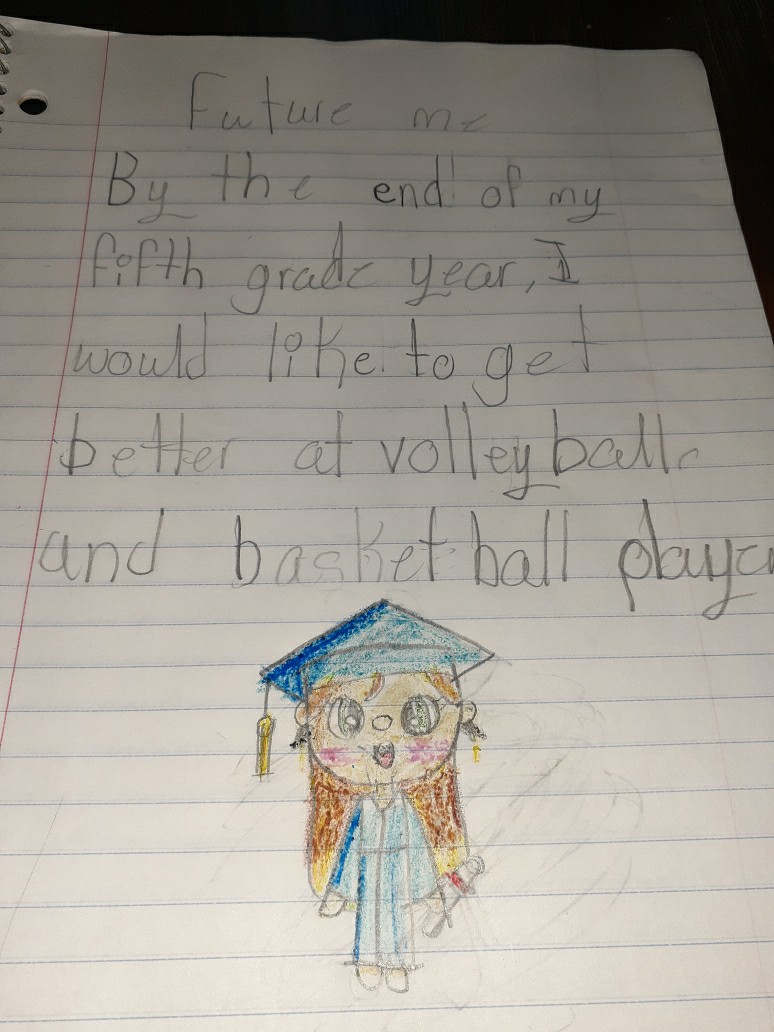 Future me
By the end of my
fifth grade year, I
would like to get
better at volleyball
and basketball player